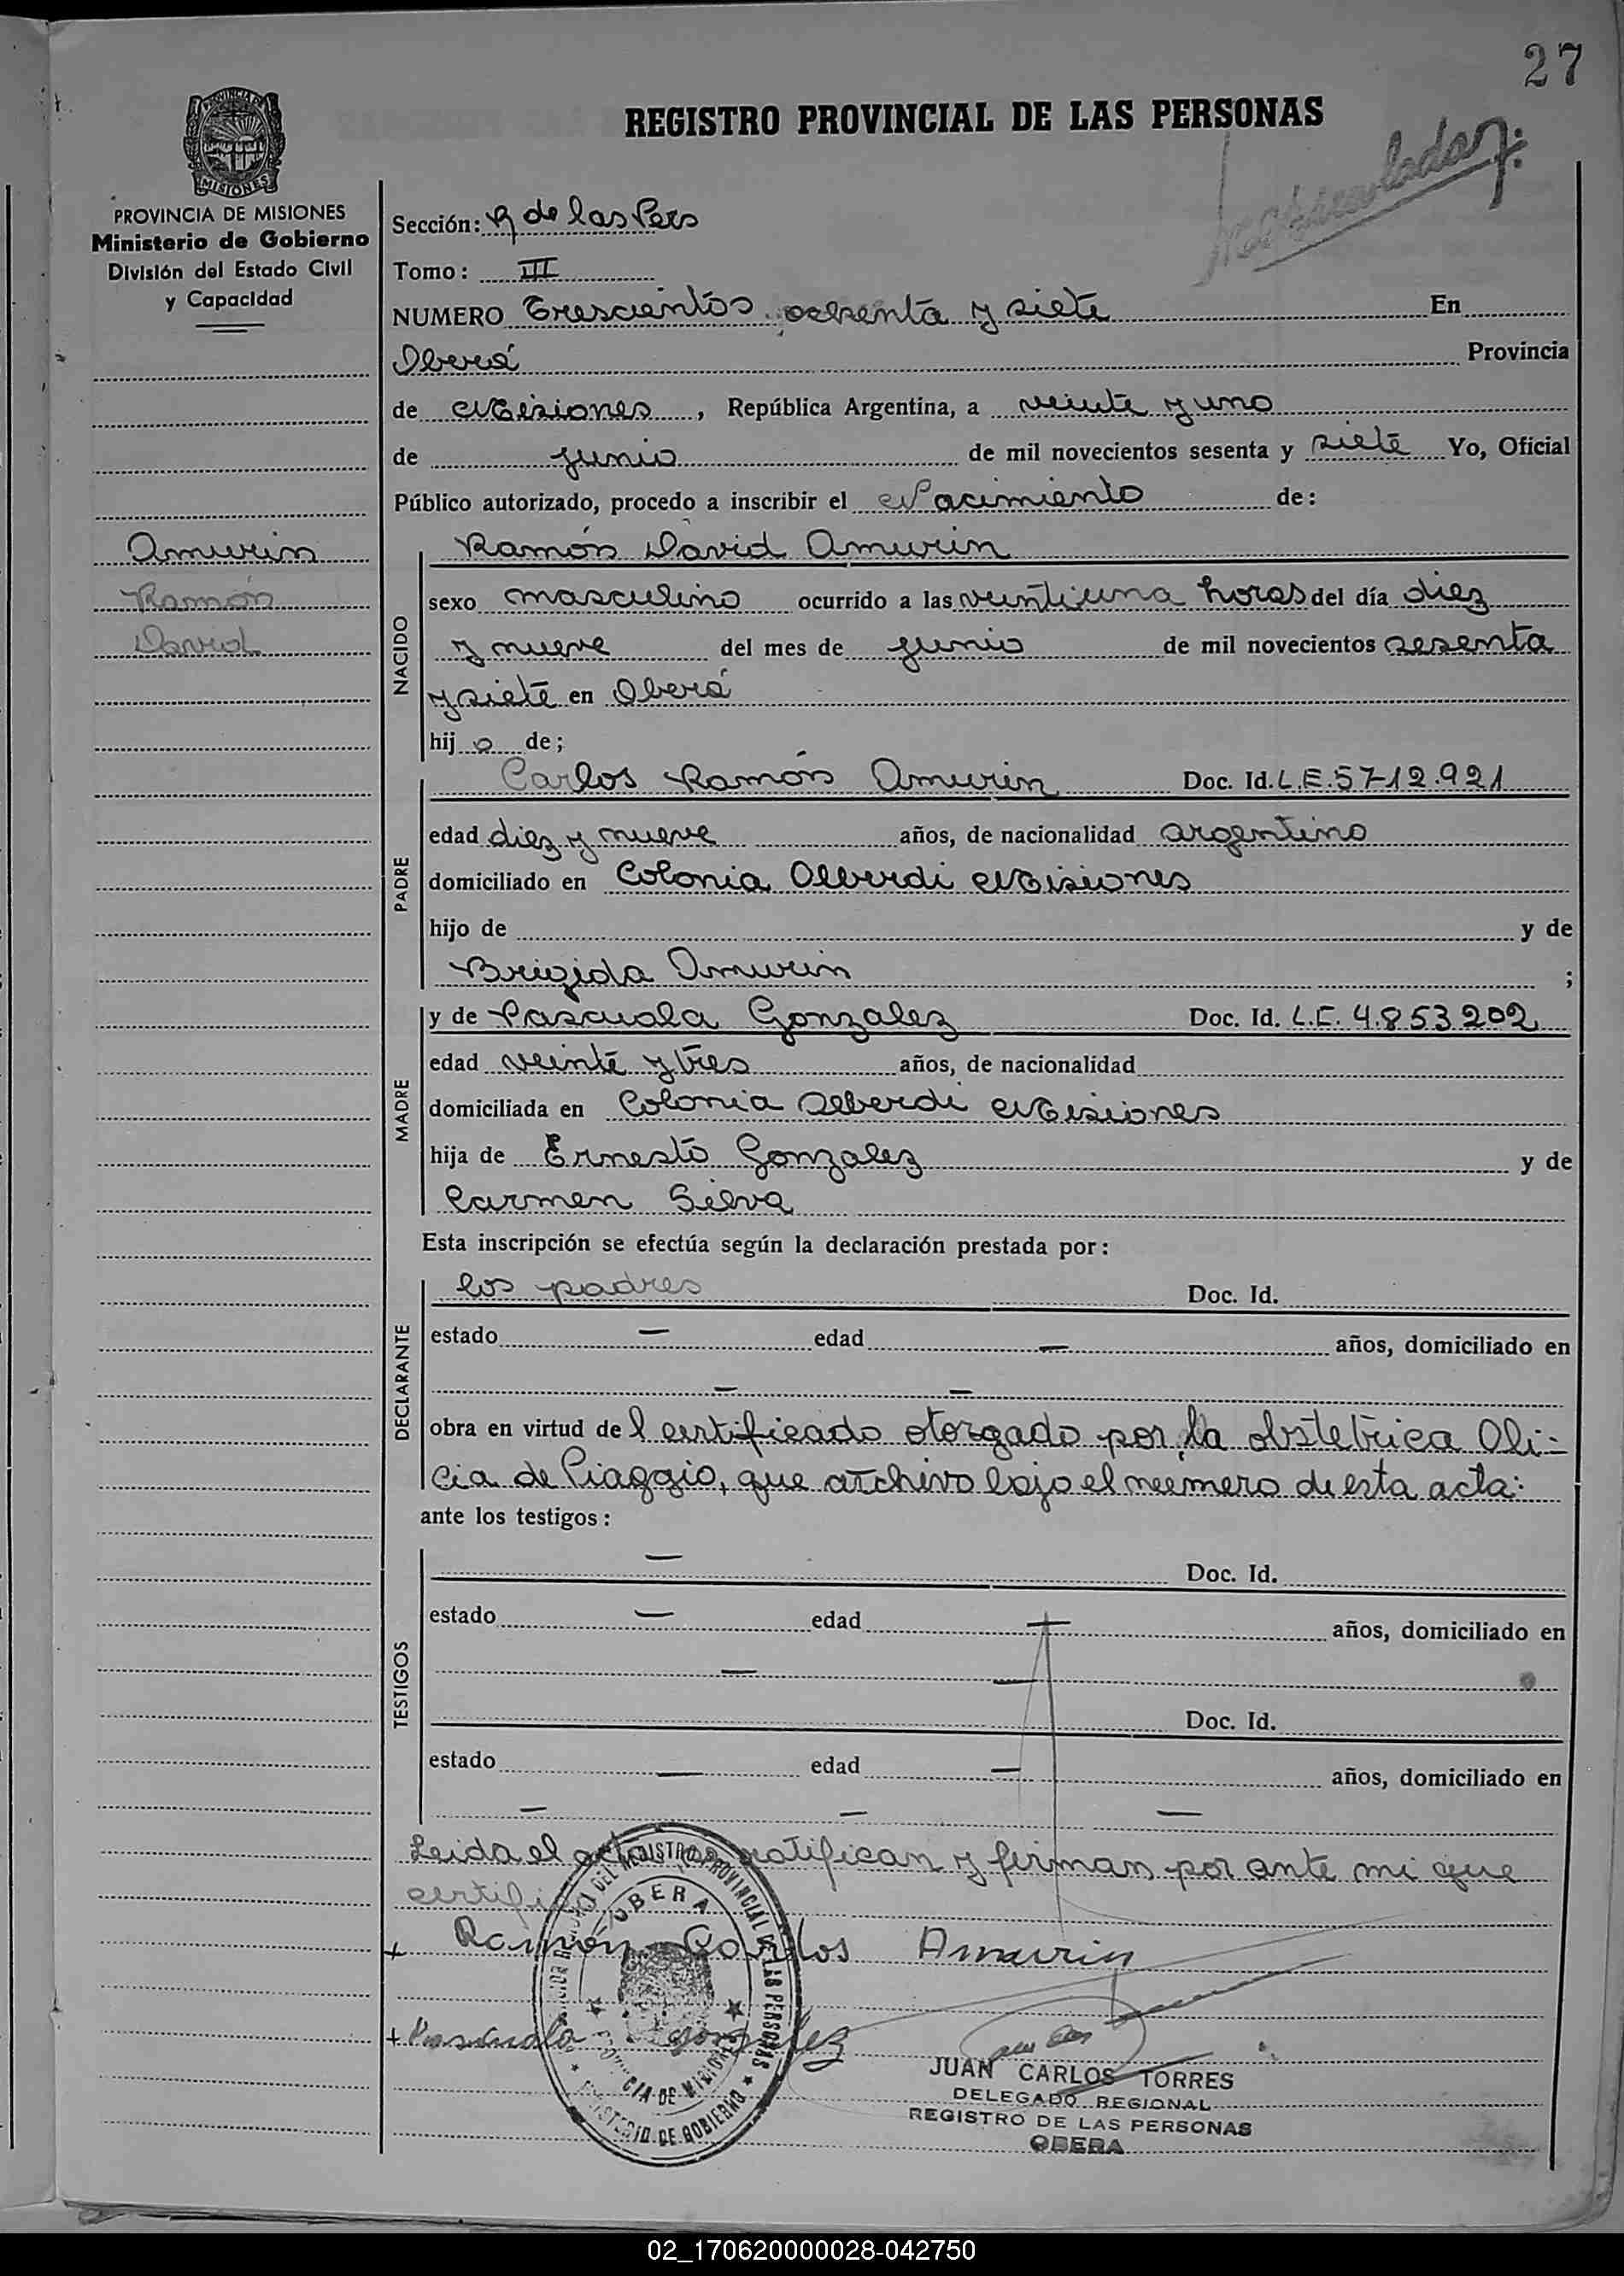 27
REGISTRO PROVINCIAL DE LAS PERSONAS
Matriculado
PROVINCIA DE MISIONES
Ministerio de Gobierno
División del Estado Civil
y Capacidad
Sección: R de las Pers
Tomo: III
NUMERO Trescientos ochenta y siete En
Oberá Provincia
de Misiones, República Argentina, a veinte y uno
de junio de mil novecientos sesenta y siete Yo, Oficial
Público autorizado, procedo a inscribir el Nacimiento de:
Amurin
Ramón
David
NACIDO
Ramón David Amurin
sexo masculino ocurrido a las veintiuna horas del día diez
y nueve del mes de junio de mil novecientos sesenta
y siete en Oberá
hijo de;
PADRE
Carlos Ramón Amurin Doc. Id. L.E. 5712.921
edad diez y nueve años, de nacionalidad argentino
domiciliado en Colonia Alberdi Misiones
hijo de y de
Brigida Amurin ;
MADRE
y de Pascuala Gonzalez Doc. Id. L.C. 4.853202
edad veinte y tres años, de nacionalidad
domiciliada en Colonia Alberdi Misiones
hija de Ernesto Gonzalez y de
Carmen Silva
Esta inscripción se efectúa según la declaración prestada por:
DECLARANTE
los padres Doc. Id.
estado — edad — años, domiciliado en
— —
obra en virtud del certificado otorgado por la obstetrica Ali-
cia de Piaggio, que archivo bajo el número de esta acta:
ante los testigos:
TESTIGOS
— Doc. Id.
estado — edad — años, domiciliado en
— —
Doc. Id.
estado — edad — años, domiciliado en
— — —
Leida el acta, se ratifican y firman por ante mi que
certifico
+ Ramón Carlos Amurin
+ Pascuala gonzalez
DEL REGISTRO PROVINCIAL DE LAS PERSONAS
OBERA
PROVINCIA DE MISIONES
MINISTERIO DE GOBIERNO
JUAN CARLOS TORRES
DELEGADO REGIONAL
REGISTRO DE LAS PERSONAS
OBERA
02_170620000028-042750